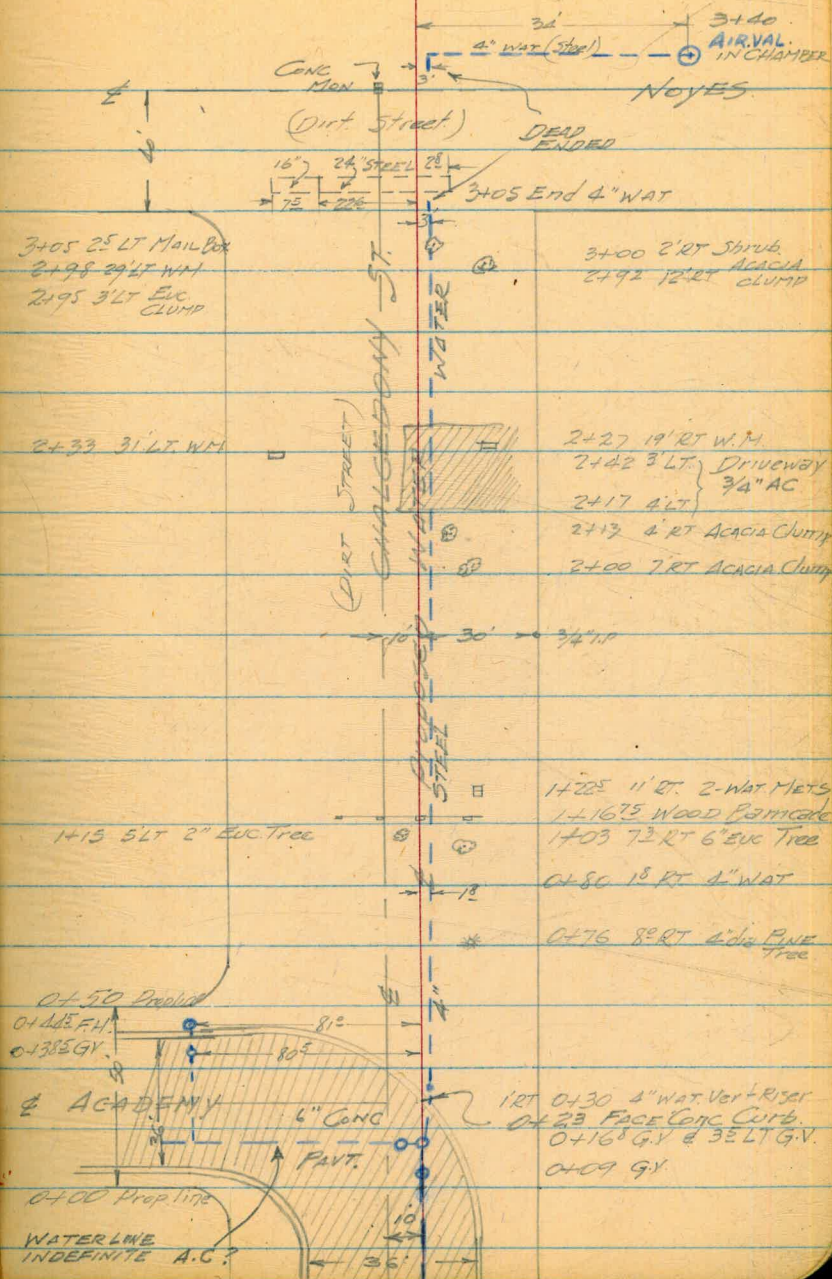 34'
3+40
AIR.VAL.
IN CHAMBER
4" WAT (Steel)
CONC
MON
3'
NOYES
℄
(Dirt Street)
DEAD
ENDED
16"
24" STEEL
2⁸
7⁵
22⁶
3+05 End 4" WAT
3'
3+05 2⁵ LT MAIL BOX
2+98 29' LT WM
2+95 3' LT EUC
CLUMP
3+00 2' RT Shrub
2+92 12' RT ACACIA
CLUMP
CHALCEDONY ST.
(DIRT STREET)
WATER
2+33 31' LT. WM
2+27 19' RT W.M.
2+42 3' LT
2+17 4' LT
Driveway
3/4" AC
2+13 4' RT ACACIA Clump
2+00 7' RT ACACIA Clump
PROPOSED WATER
10'
30'
3/4" I.P
STEEL
1+22⁵ 11' RT. 2-WAT. METS
1+16⁷⁵ WOOD Barricade
1+15 5' LT 2" EUC. Tree
1+03 7³ RT 6" EUC Tree
0+80 1⁸ RT 4" WAT
℄
1⁸
0+76 8⁰ RT 4" dia PINE
Tree
4"
℄
0+50 Prop line
0+44⁵ F.H.
81⁰
0+38⁵ G.V.
80⁵
50'
36'
℄ ACADEMY
6" CONC
PAVT.
1' RT 0+30 4" WAT. Vert Riser
0+23 FACE Conc Curb.
0+16⁸ G.V & 3⁵ LT G.V.
0+09 G.V.
0+00 Prop. line
WATER LINE
INDEFINITE A.C?
10'
36'